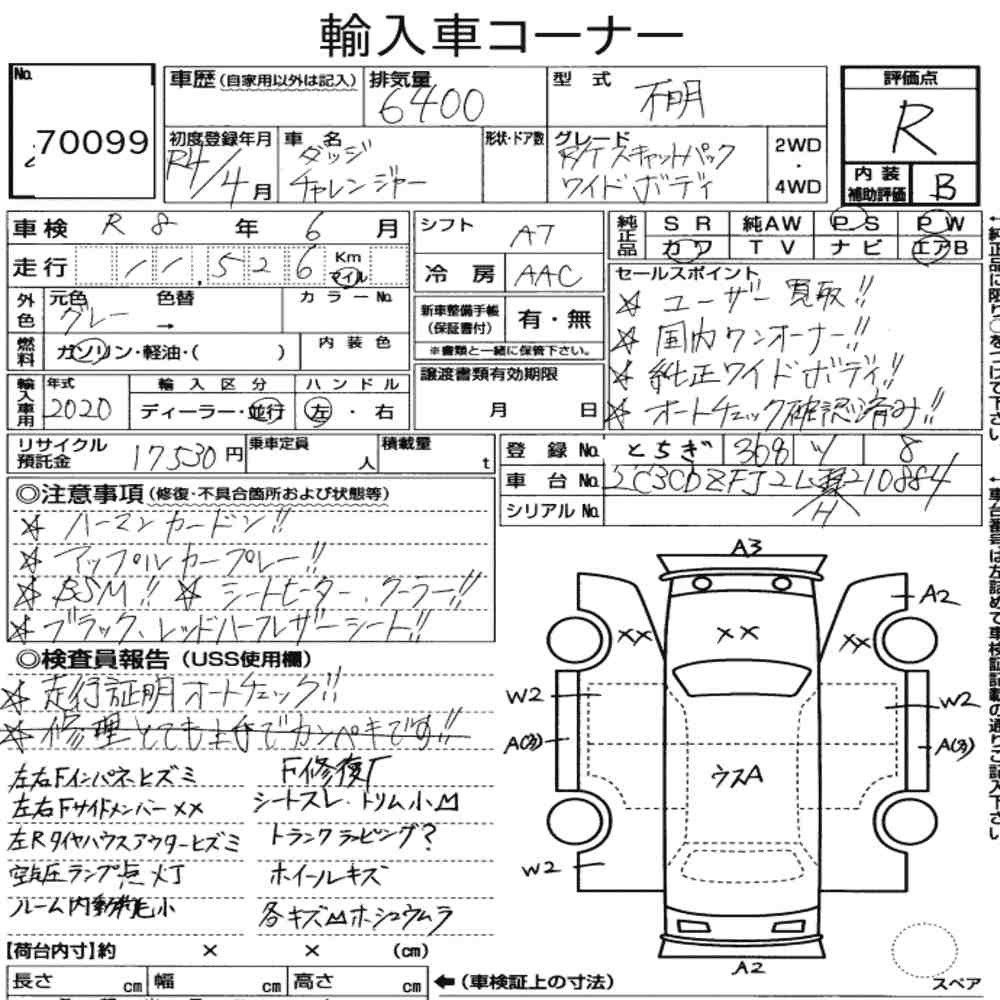 輸入車コーナー
No. 70099
車歴 (自家用以外は記入)
排気量 6400
型式 不明
評価点 R
初度登録年月 R4/4月
車名 ダッジ チャレンジャー
形状・ドア数
グレード R/T スキャットパック ワイドボディ
2WD・4WD
内装補助評価 B
車検 R8年6月
シフト AT
純正品 SR 純AW PS PW
カワ TV ナビ エアB
走行 11,526 Km マイル
冷房 AAC
外色 元色 グレー → 色替
カラーNo.
新車整備手帳(保証書付) 有・無
※書類と一緒に保管下さい。
燃料 ガソリン・軽油・( )
内装色
セールスポイント
☆ ユーザー買取!!
☆ 国内ワンオーナー!!
☆ 純正ワイドボディ!!
☆ オートチェック確認済み!!
輸入車用 年式 2020
輸入区分 ディーラー・並行
ハンドル 左・右
譲渡書類有効期限
月 日
リサイクル預託金 17530円
乗車定員 人
積載量 t
登録No. とちぎ 368 ツ 8
車台No. 2C3CDZFJ2L 210884
H
シリアルNo.
◎注意事項 (修復・不具合箇所および状態等)
☆ ハーマンカードン!!
☆ アップルカープレー!!
☆ BSM!! ☆ シートヒーター、クーラー!!
☆ ブラック、レッドハーフレザーシート!!
◎検査員報告 (USS使用欄)
☆ 走行証明オートチェック!!
☆ 修理とても上手でカンペキです!!
左右Fインパネヒズミ
F修復厂
左右Fサイドメンバー××
シートスレ・トリム小凹
左Rタイヤハウスアウターヒズミ
トランクラッピング?
空気圧ランプ点灯
ホイールキズ
ルーム内 小
各キズ凹ホシュウムラ
【荷台内寸】約 × × (cm)
長さ cm 幅 cm 高さ cm
←(車検証上の寸法)
A3
A2
××
××
××
W2
W2
A(3)
A(3)
ウスA
W2
A2
スペア
←純正品に限り○をつけて下さい
←車台番号は左詰めで車検証記載の通りご記入下さい